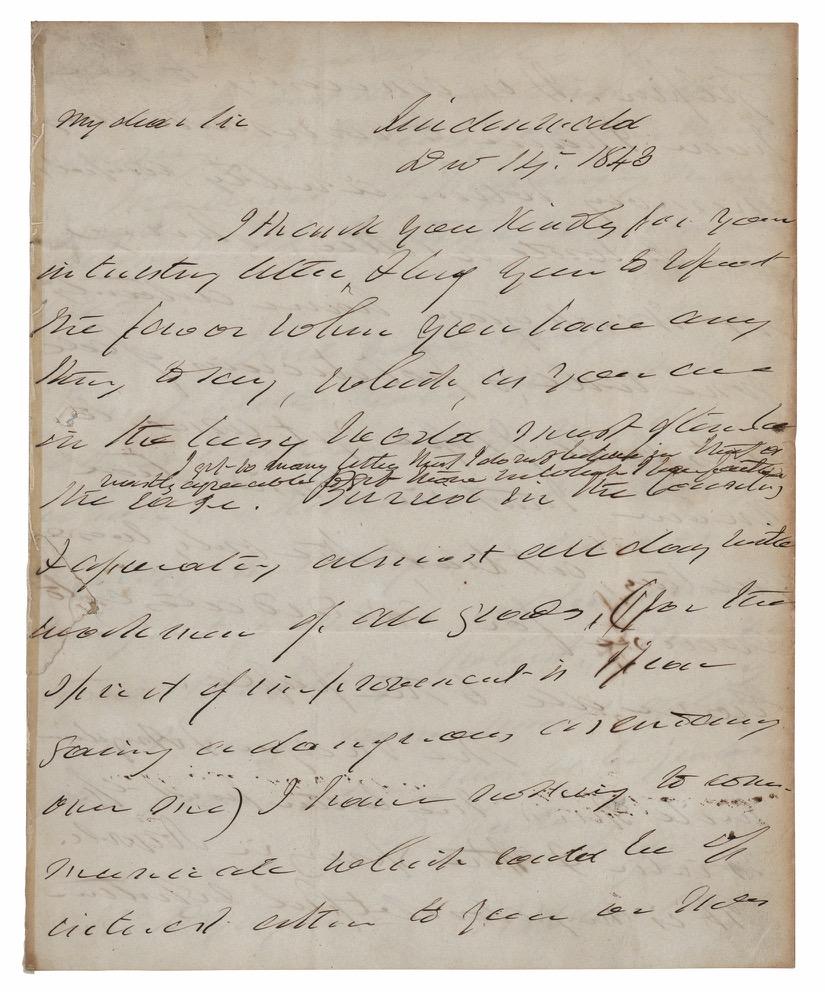 My dear Sir
Lindenwald
Dec 14. 1843
I thank you kindly for your
interesting letter, & beg you to repeat
the favor when you have any
thing to say, which, as you are
in the busy world must often be
I get so many letters that I do not
mostly agreeable more
the case. Buried in the country
& operating almost all day with
workmen of all grades, (for the
spirit of improvement is
gaining a dangerous ascendancy
over me) I have nothing to com-
municate which could be of
interest either to you or Mrs